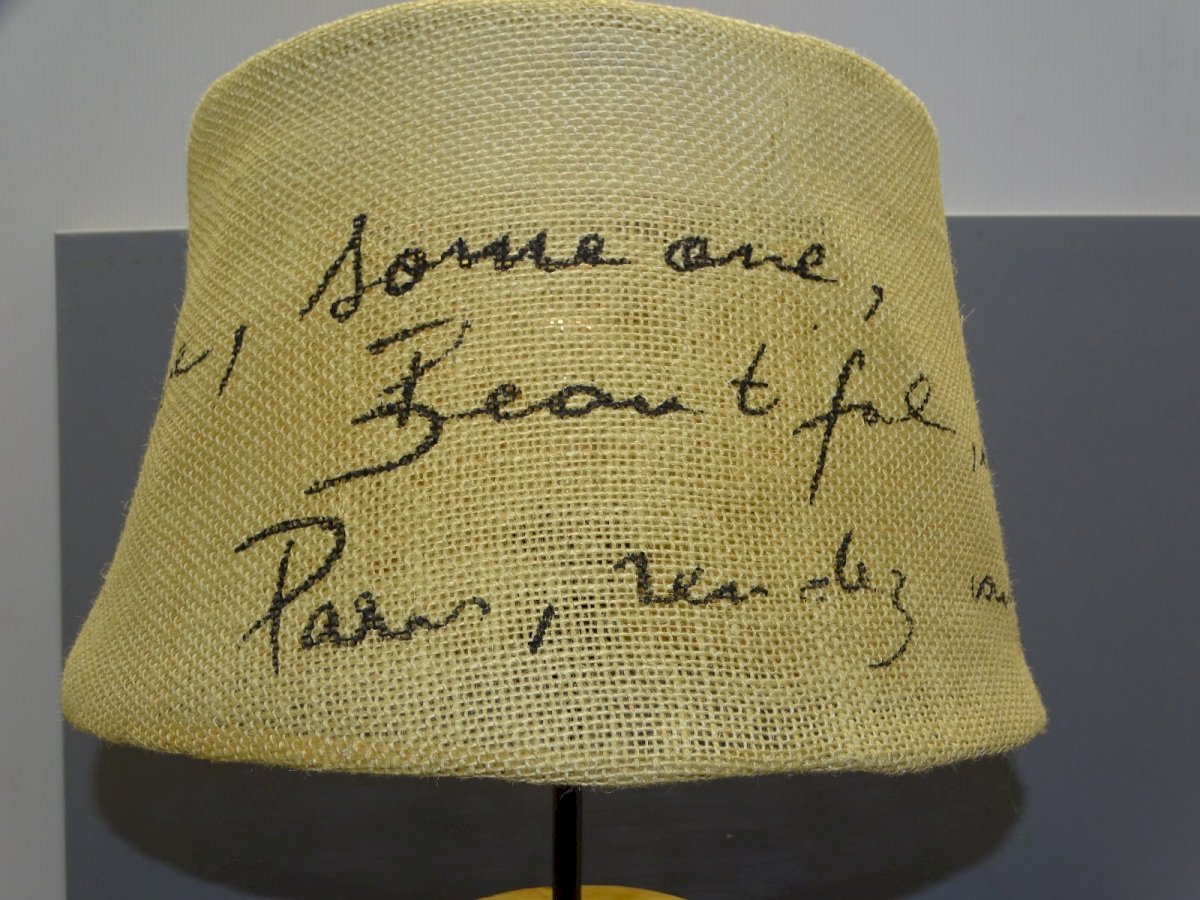 some one,
Beautful
Paris, rendez